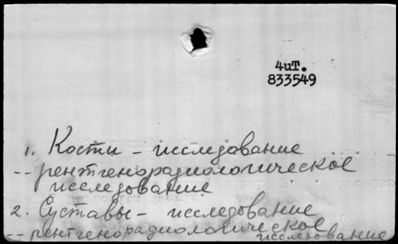 ЧиТ.
833549
1. Кости - исследование
-- рентгенорадиологическое
исследование
2. Суставы - исследование
-- рентгенорадиологическое
исследование